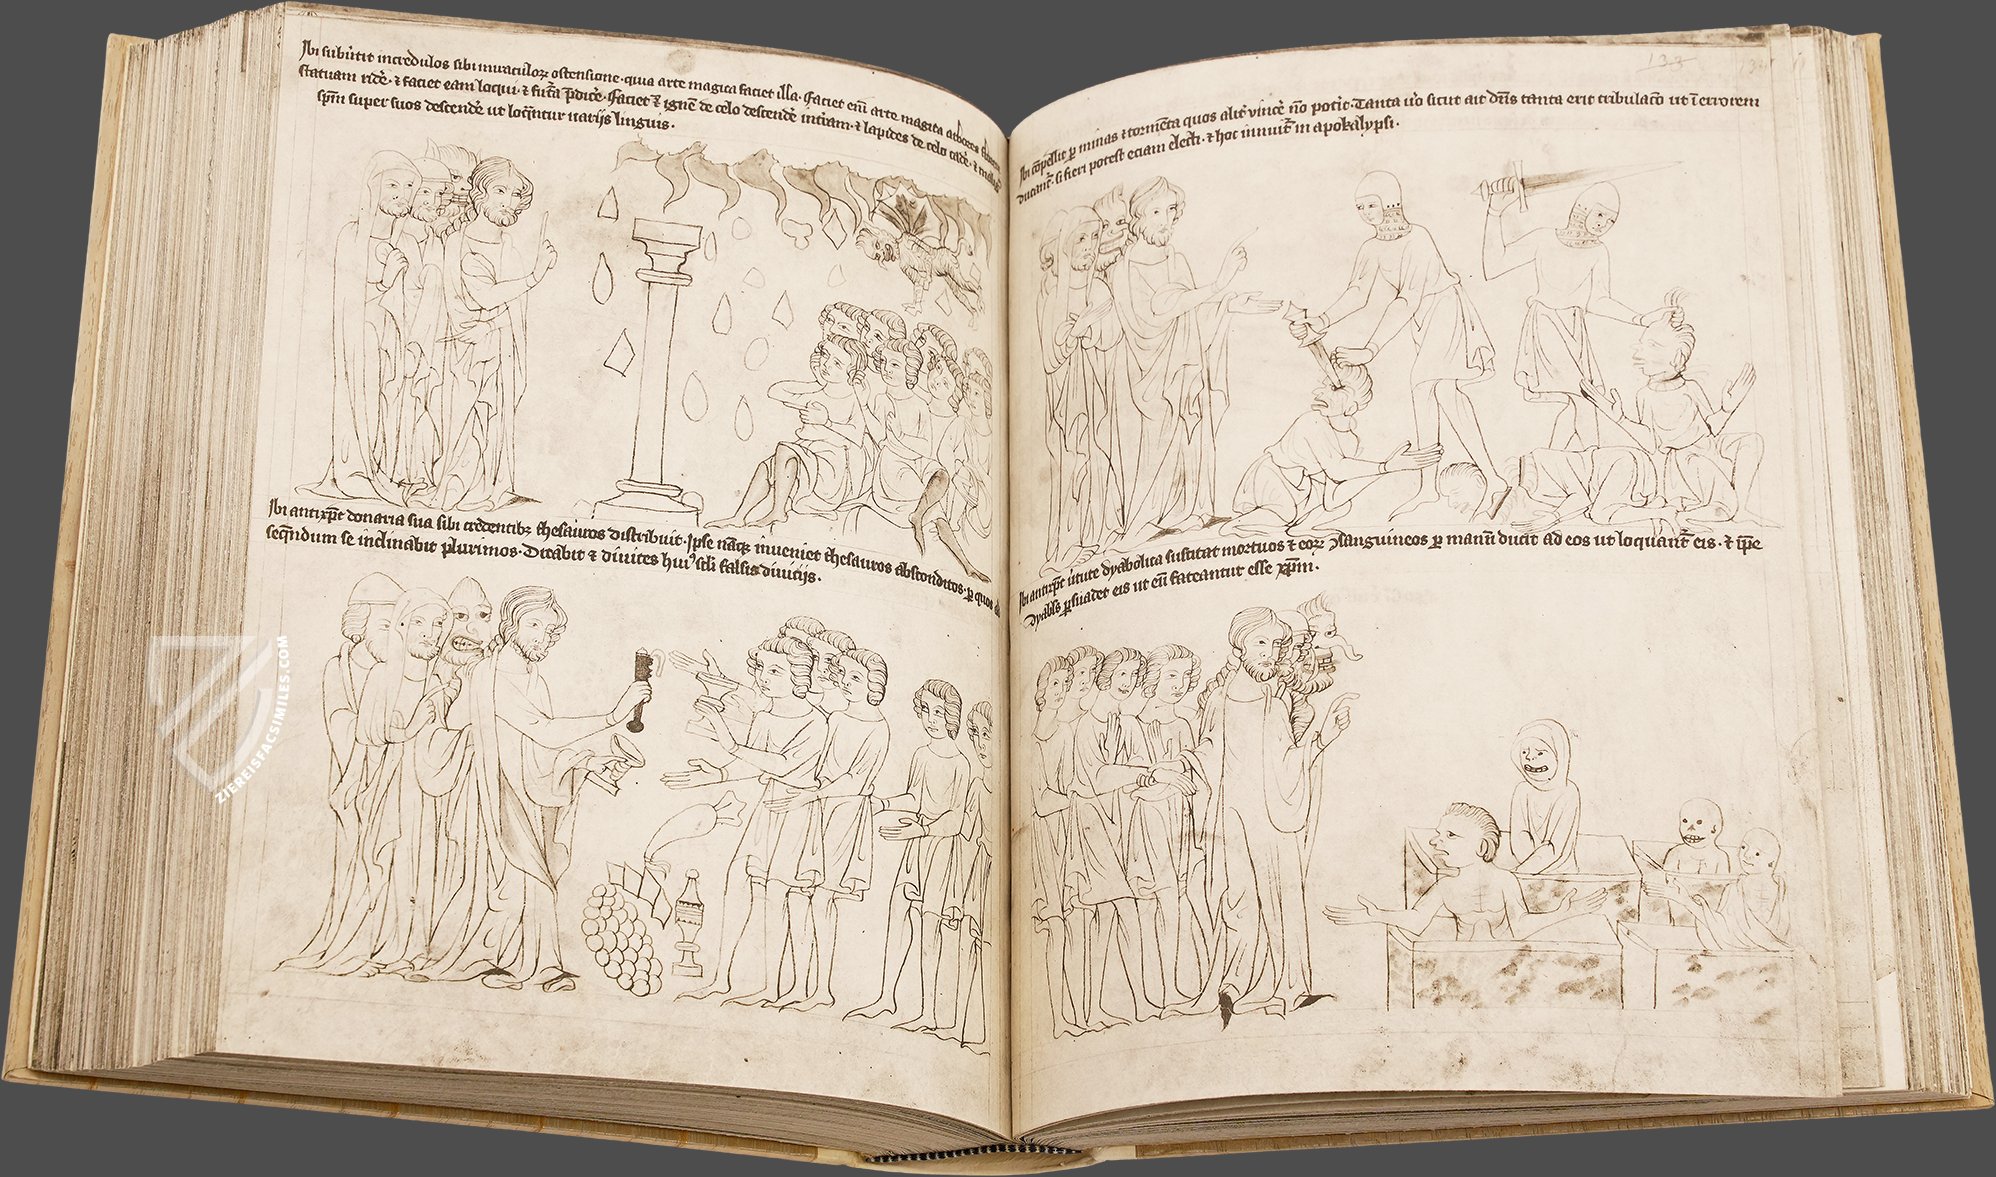 Ibi subūtit incredulos sibi miraculoꝝ ostensione · quia arte magica faciet illa · Faciet eni arte magica arbores florere
statuam ridē · ⁊ faciet eam loqui · ⁊ futa p̄dicē · Faciet ⁊ ignē de celo descendē iratam · ⁊ lapides de celo cadē · ⁊ malignū
spm̄ super suos descendē ut loqntur uarijs linguis ·
Ibi antixpc donaria sua sibi credentibꝫ thesauros distribuit · Ipse nāqꝫ inueniet thesauros absconditos · ꝑ quos ad
seqndum se inclinabit plurimos · Ditabit ⁊ diuites huiꝰ scli falsis diuicijs ·
133
Ibi cōpellit ꝑ minas ⁊ tormēta quos alit̄ vincē nō potit · Tanta uo sicut ait dns tanta erit tribulaco ut ī errorem
ducant̄ · si fieri potest eciam electi · ⁊ hoc innuit̄ in apokalypsi ·
Ibi antixpc ūtute dyabolica suscitat mortuos ⁊ eoꝝ ꝯsanguineos ꝑ manū ducit ad eos ut loquant̄ eis · ⁊ ipe
dyabls ꝑsuadet eis ut eū fateantur esse xpm̄ ·
ZIEREISFACSIMILES.COM